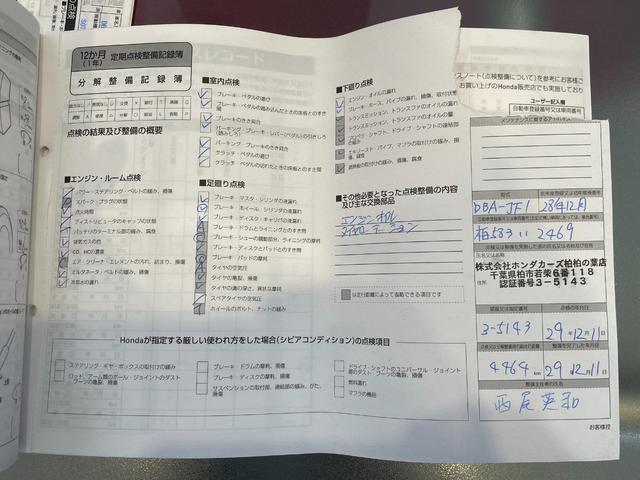 12か月
(1年)
定期点検整備記録簿
分解整備記録簿
点検の結果及び整備の概要
■エンジン・ルーム点検
パワー・ステアリング・ベルトの緩み、損傷
スパーク・プラグの状態
点火時期
ディストリビュータのキャップの状態
バッテリのターミナル部の緩み、腐食
排気ガスの色
CO、HCの濃度
エア・クリーナ・エレメントの汚れ、詰まり、損傷
オルタネータ・ベルトの緩み、損傷
冷却水の漏れ
■室内点検
ブレーキ・ペダルの遊び
ブレーキ・ペダルの踏み込んだときの床板とのすき間
ブレーキのきき具合
パーキング・ブレーキ・レバー(ペダル)の引きしろ(踏みしろ)
パーキング・ブレーキのきき具合
クラッチ・ペダルの遊び
クラッチ・ペダルの切れたときの床板とのすき間
■足廻り点検
ブレーキ・マスタ・シリンダの液漏れ
ブレーキ・ホイール・シリンダの液漏れ
ブレーキ・ディスク・キャリパの液漏れ
ブレーキ・ドラムとライニングのすき間
ブレーキ・シューの摺動部分、ライニングの摩耗
ブレーキ・ディスクとパッドとのすき間
ブレーキ・パッドの摩耗
タイヤの空気圧
タイヤの亀裂、損傷
タイヤの溝の深さ、異状な摩耗
スペアタイヤの空気圧
ホイールのボルト、ナットの緩み
■下廻り点検
エンジン・オイルの漏れ
ブレーキ・ホース、パイプの漏れ、損傷、取付状態
トランスミッション、トランスファのオイルの漏れ
トランスミッション、トランスファのオイルの量
プロペラ・シャフト、ドライブ・シャフトの連結部の緩み
エキゾースト・パイプ、マフラの取付けの緩み、損傷、腐食
遮熱板の取付けの緩み、損傷、腐食
■その他必要となった点検整備の内容
及び主な交換部品
エンジンオイル
タイヤローテーション
は走行距離によって省略できる項目です
Hondaが指定する厳しい使われ方をした場合(シビアコンディション)の点検項目
ステアリング・ギヤ・ボックスの取付けの緩み
ロッド、アーム類のボール・ジョイントのダスト・ブーツの亀裂、損傷
ブレーキ・ドラムの摩耗、損傷
ブレーキ・ディスクの摩耗、損傷
サスペンションの取付部、連結部の緩み、がた、損傷
ドライブ・シャフトのユニバーサル・ジョイント部のダスト・ブーツの亀裂、損傷
燃料漏れ
マフラの機能
スノート(点検整備について)を参考にお客様ご
お買い上げのHonda販売店でも実施してお
ユーザー記入欄
自動車登録番号又は車両番号
型式
初年度登録又は初年度検査年
DBA-JF1
28年12月
柏583 い 2469
株式会社ホンダカーズ柏柏の葉店
千葉県柏市若柴6番118
認証番号3-5143
住所
点検の年月日
3-5143
29年12月11日
整備を完了した年月日
4464 km
29年12月11日
整備主任者の氏名
西尾英和
お客様控